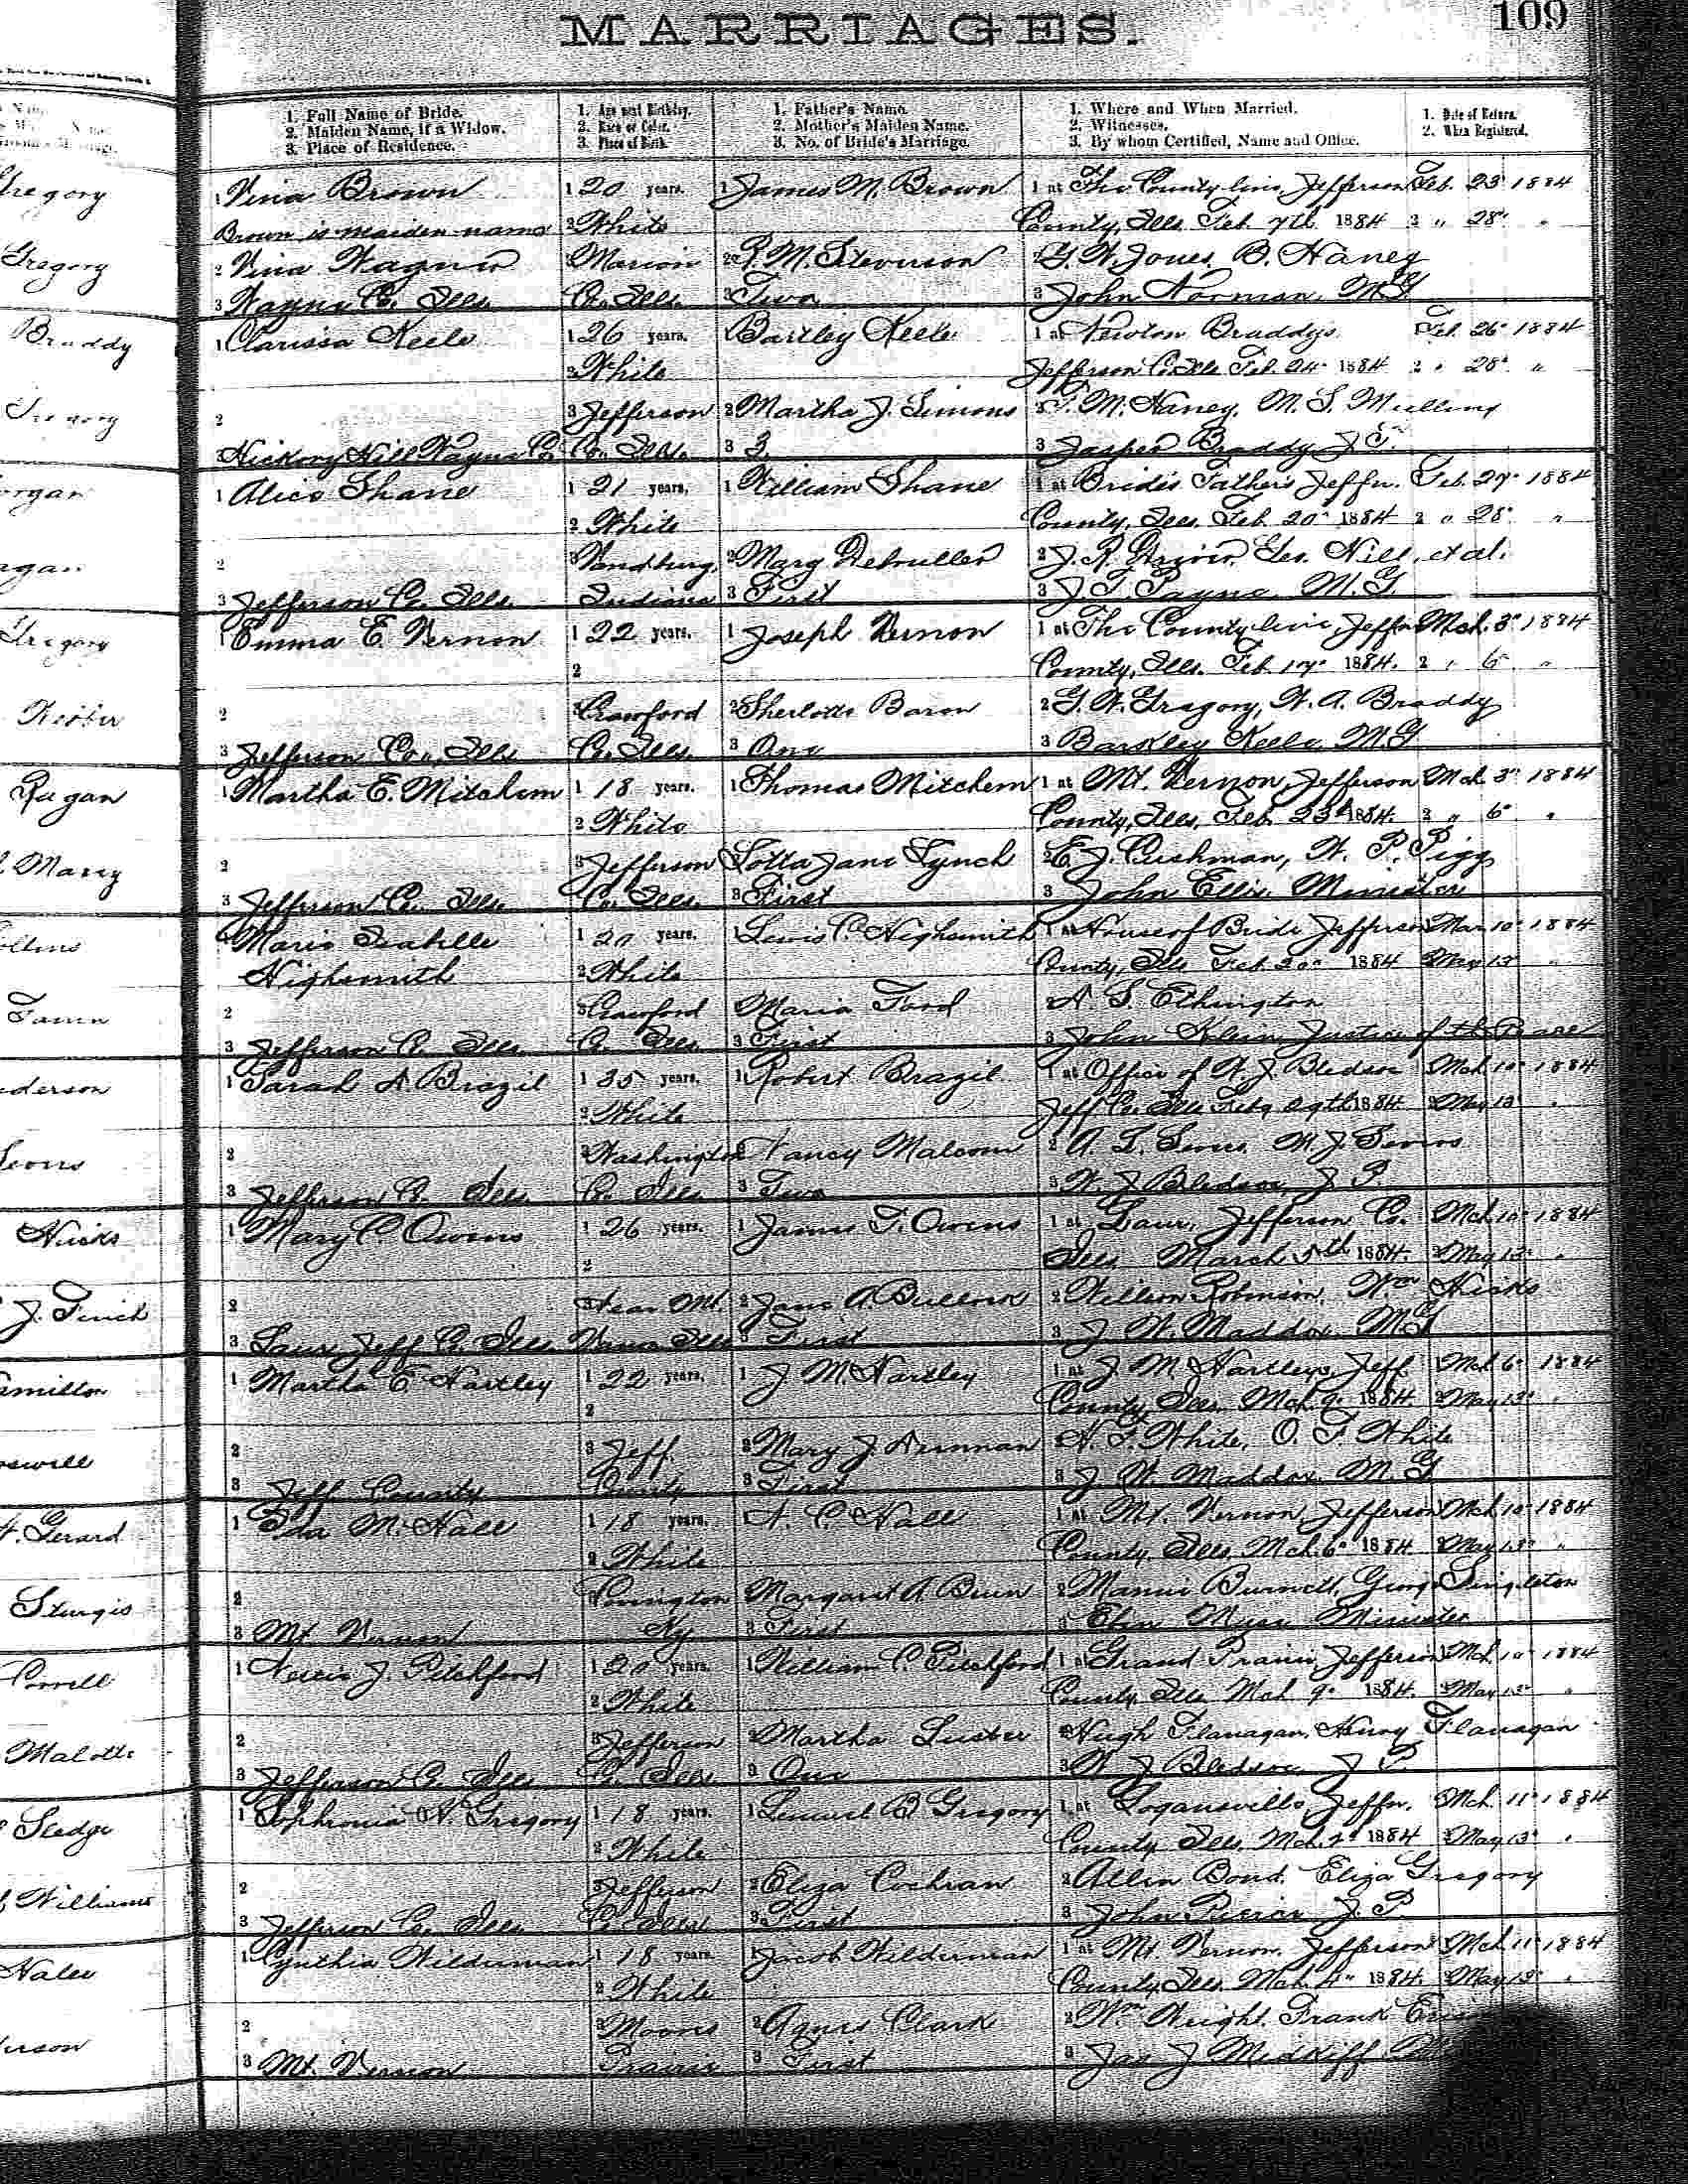 MARRIAGES.
109
1. Full Name of Bride.
2. Maiden Name, if a Widow.
3. Place of Residence.
1. Age next Birthday.
2. Race or Color.
3. Place of Birth.
1. Father's Name.
2. Mother's Maiden Name.
3. No. of Bride's Marriage.
1. Where and When Married.
2. Witnesses.
3. By whom Certified, Name and Office.
1. Date of Return.
2. When Registered.
Gregory
1 Vina Brown 1 20 years. 1 James M. Brown 1 at The County line, Jefferson Feb. 23 1884
Brown is maiden name 2 White County, Ills. Feb. 7th 1884 2 " 28 "
Gregory
2 Vina Wagner 3 Marion 2 R. M. Stevenson 2 G. W. Jones, B. Haney
3 Wayne Co. Ills. Co. Ills. 3 Two 3 John Norman, M.G.
Braddy
1 Clarissa Keele 1 26 years. Bartley Keele 1 at Newton Braddys Feb. 26 1884
2 White Jefferson Co. Ills. Feb. 24 1884 2 " 28 "
Gregory
2 3 Jefferson 2 Martha J. Simons 2 T. M. Haney, M. S. Mullins
Hickory Hill Wayne Co. Co. Ills. 3 3 3 Jasper Braddy J.P.
organ
1 Alice Shane 1 21 years. 1 William Shane 1 at Bride's Fathers Jeffn. Feb. 27 1884
2 White County, Ills. Feb. 20 1884 2 " 28 "
agan
2 3 Vandburg, 2 Mary 2 J. R. Geo. Hill, et al.
3 Jefferson Co. Ills. Indiana 3 First 3 J. T. Payne M.G.
Gregory
1 Emma E. Vernon 1 22 years. 1 Joseph Vernon 1 at The County line, Jeffn Mch. 3 1884
2 County, Ills. Feb. 17 1884. 2 " 6 "
2 3 Crawford 2 Sherlotte Baron 2 G. W. Gregory, W. A. Braddy
3 Jefferson Co., Ills Co. Ills. 3 One 3 Barkley Keele, M.G.
Ragan
1 Martha E. Mitchem 1 18 years. 1 Thomas Mitchem 1 at Mt. Vernon, Jefferson Mch. 3 1884
2 White County, Ills. Feb. 23d 1884. 2 " 6 "
Marry
2 3 Jefferson Lotta Jane Lynch 2 E. J. Cushman, W. P. Pigg
3 Jefferson Co. Ills Co. Ills. 3 First 3 John Ellis, Minister
ollins
Marie Isabelle 1 20 years. 1 Lewis C. Highsmith 1 at House of Bride Jefferson Mar. 10 1884
Highsmith 2 White County, Ills Feb. 20 1884 2 May 13 "
2 3 Crawford Maria Ford A. S. Ethington
3 Jefferson Co. Ills. Co. Ills 3 First 3 John Klein Justice of the Peace
derson
1 Sarah A Brazil 1 35 years. 1 Robert Brazil 1 at Office of W. J. Bledsoe Mch. 10 1884
2 White Jeff Co. Ills 1884 2 May 13 "
2 3 Washington Nancy Malcom 2 A. L.
3 Jefferson Co. Ills Co. Ills 3 Two 3 W. J. Bledsoe, J. P.
Hicks
1 Mary C Owens 1 26 years. 1 James T. Owens 1 at Laur, Jefferson Co. Mch. 10 1884
2 Ills March 5th 1884. 2 May 13 "
J. Finch
2 3 Near Mt. 2 Jane A. Bullock 2 William Robinson, Wm Hicks
3 Laur Jeff Co. Ills Vernon Ills 3 First 3 J. W. Maddox M.G.
amilton
1 Martha E Hartley 1 22 years. 1 J M. Hartley 1 at J. M. Hartleys, Jeff Mch 6 1884
2 County Ills. Mch. 9 1884 2 May 13 "
2 3 Jeff. 2 Mary J. H. T. White, O. F. White
3 Jeff County County 3 First 3 J. W. Maddox M. G.
Gerard
1 Ida M. Hall 1 18 years. 1 A. C. Hall 1 at Mt. Vernon, Jefferson Mch. 10 1884
2 White County Ills. Mch. 6 1884 2 May 13 "
Sturgis
2 Covington Margaret A Bunn 2 Mamie Burnett, George Singleton
3 Mt Vernon Ky 3 First 3 Minister
Correll
1 J. Pitchford 1 20 years. 1 William C. Pitchford 1 at Grand Prairie, Jefferson Mch. 10 1884
2 White County Ills Mch 9 1884. 2 May 13 "
Malotte
2 3 Jefferson 2 Martha Luster 2 Hugh Flanagan, Henry Flanagan
3 Jefferson Co. Ills Co. Ills 3 One 3 W. J. Bledsoe J P
Sledge
1 Sophronia N. Gregory 1 18 years. 1 Lemuel B. Gregory 1 at Logansville, Jeffn. Mch. 11 1884
2 White County Ills. Mch. 2d 1884 2 May 13 "
Williams
2 3 Jefferson 2 Eliza Cochran 2 Allen Bond, Eliza Gregory
3 Jefferson Co. Ills. Co. Ills 3 First 3 John Pierce J. P
1 Cynthia Wilderman 1 18 years. 1 Jacob Wilderman 1 at Mt. Vernon, Jefferson Mch. 11 1884
2 White County, Ills. Mch. 4 1884. 2 May 13 "
erson
2 3 Moores 2 Agnes Clark 2 Wm Wright, Frank
3 Mt. Vernon Prairie 3 First 3 Jas. J. Midkiff